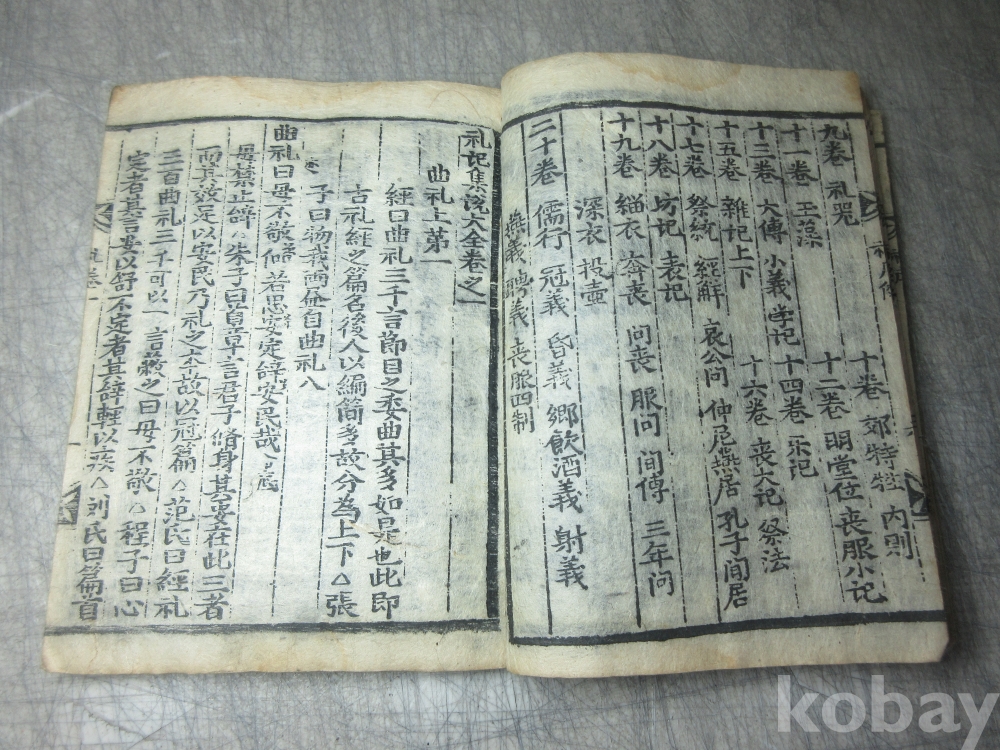 九卷 礼器 十卷 郊特牲 内则
十一卷 玉藻 十二卷 明堂位 丧服小记
十三卷 大傳 小義 学记 十四卷 乐记
十五卷 雜记上下 十六卷 丧大记 祭法
十七卷 祭統 經解 哀公问 仲尼燕居 孔子间居
十八卷 坊记 表记
十九卷 緇衣 奔丧 问丧 服问 间傳 三年问
深衣 投壺
二十卷 儒行 冠義 昏義 鄉飲酒義 射義
燕義 聘義 丧服四制
礼记集说大全卷之一
曲礼上第一
經曰曲礼三千言節目之委曲其多如是也此即
古礼經之篇名後人以編简多故分為上下△張
子曰物我两 自曲礼入
曲礼曰毋不敬儼若思安定辞安民哉
毋禁止辞△朱子曰首章言君子修身其要在此三者
而其效足以安民乃礼之本故以冠篇△范氏曰經礼
三百曲礼三千可以一言蔽之曰毋不敬△程子曰心
定者其言安以舒不定者其辞輕以疾△刘氏曰篇首
kobay